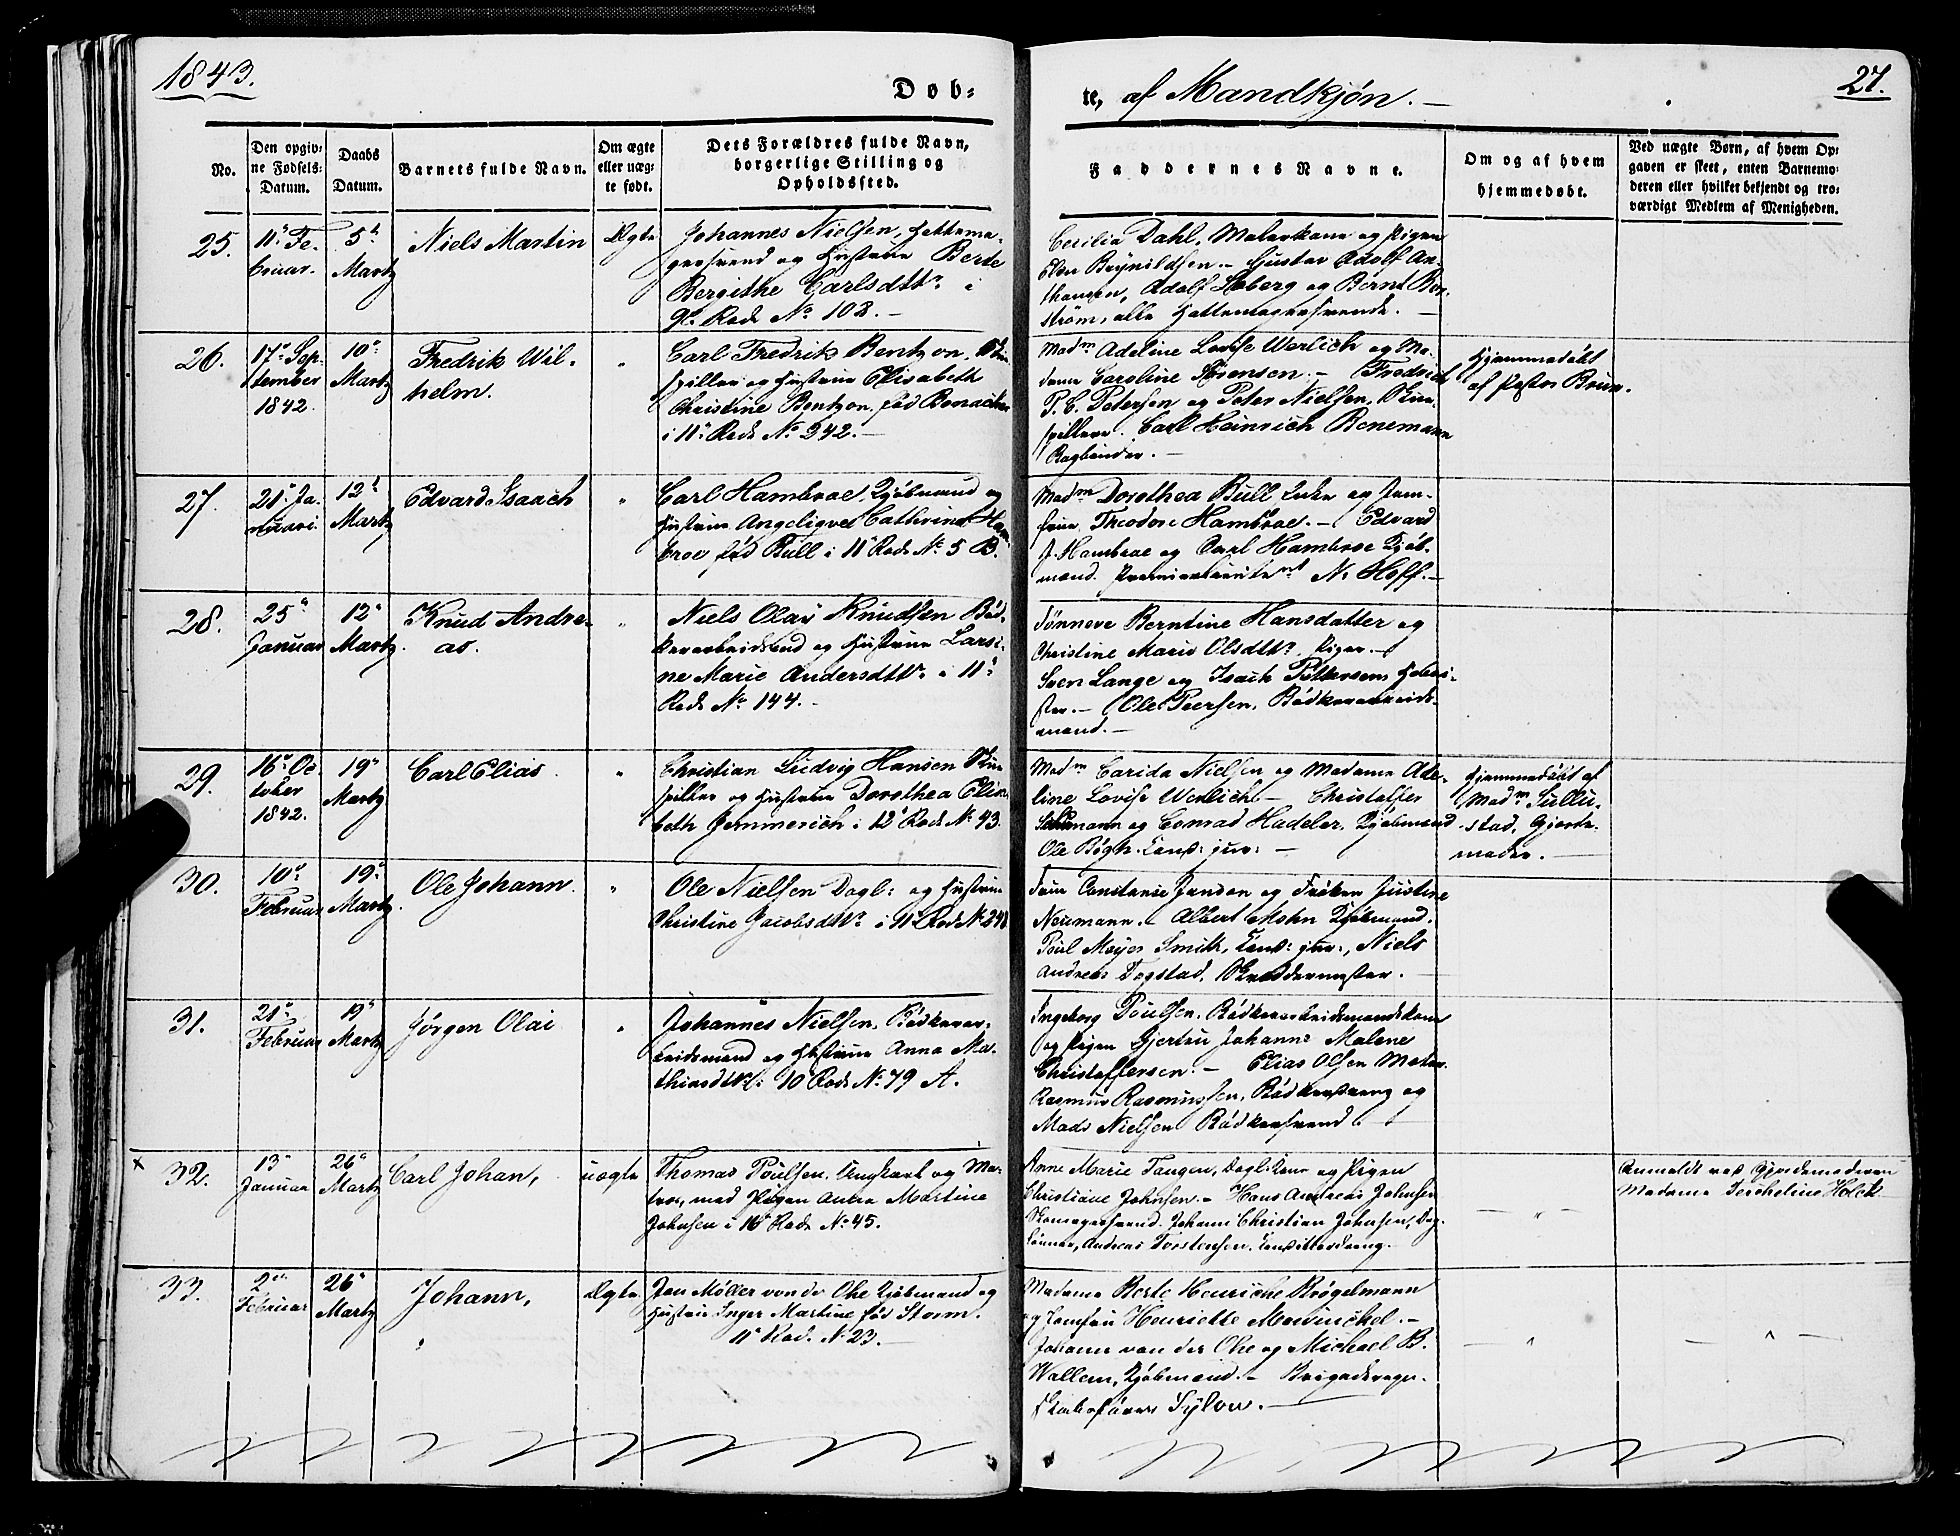 1843.
Døb-
te, af Mandkjøn. —
27.
No.
Den opgiv-
ne Fødsels-
Datum.
Daabs
Datum.
Barnets fulde Navn.
Om ægte
eller uæg-
te født.
Dets Forældres fulde Navn,
borgerlige Stilling og
Opholdssted.
Faddernes Navne.
Om og af hvem
hjemmedøbt.
Ved uægte Børn, af hvem Op-
gaven er skeet, enten Barnemo-
deren eller hvilket bekjendt og tro-
værdigt Medlem af Menigheden.
25.
11te Fe-
bruar.
5te
Martz
Niels Martin
Ægte
Johannes Nielsen, Hattema-
gersvend og Hustrue Berte
Bergithe Carlsdttr i
9de Rode No 108. —
Cecilia Dahl, Malerkone og Pigen
Elen Brynildsen — Gustav Adolf An-
thonsen, Adolf Søberg og Bernt
strøm, alle Hattemagersvende. —
26.
17de Sep-
tember
1842.
10de
Martz
Fredrik Wil-
helm.
"
Carl Fredrik Bentzon, Skue-
spiller og Hustrue Elisabeth
Christine Bentzon, fød
i 11te Rode No 242. —
Madm Adeline Lovise Werlich og Ma-
dame Caroline Sørensen. — Fredrich
P. C. Petersen og Peter Nielsen, Skue-
spillere. Carl Heinrich Benemann
Bogbinder. —
Hjemmedøbt
af Pastor Brun.
27.
21de Ja-
nuari.
12te
Martz
Edvard Isaach
"
Carl Hambroe, Kjøbmand og
Hustrue Angelique Cathrine Ham-
broe fød Bull i 11te Rode No 5 B.
Madm Dorothea Bull Enke og Jom-
frue Theodore Hambroe. — Edvard
J. Hambroe og Carl Hambroe Kjøb-
mænd. Premierlieutent N. Hoff. —
28.
25de
Januar
12te
Martz.
Knud Andre-
as.
"
Niels Olai Knudsen Bød-
kerarbeidsmd og Hustrue Larsi-
ne Marie Andersdttr i 11te
Rode No 144. —
Tønneve Berntine Hansdatter og
Christine Marie Olsdttr, Piger. —
Sven Lange og Isach Pettersen,
— Ole Peersen, Bødkerarbeids-
mand. —
29.
16de Oc-
tober
1842.
19de
Martz
Carl Elias
"
Christian Ludvig Hansen Skue-
spiller og Hustrue Dorothea Elisa-
beth Jemmerich i 12 Rode No 43.
Madm Carida Nielsen og Madame Ade-
line Lovise Werlich — Christoffer
og Conrad Hadeler, Kjøbmænd
Ole Bøgh. Cand: jur: —
Hjemmedøbt af
Madm Sullu-
stad, Gjorde-
moder. —
30.
10de
Februar
19de
Martz.
Ole Johann.
"
Ole Nielsen Dagl: og Hustrue
Christine Jacobsdttr i 11te Rode No 248
Frue Constance Jansen og Frøken Justine
Neumann. — Albert Mohn Kjøbmand.
Poul Meyer Smith, Cand: jur:, Niels
Andreas Fogstad, Skreddermester. —
31.
21de
Februar
19de
Martz
Jørgen Olai
"
Johannes Nielsen, Bødkerar-
beidsmand og Hustrue Anna Ma-
thiasdttr i 10 Rode No 79 A.
Ingeborg Poulsen, Bødkerarbeidsmandskone
og Pigen Gjertru Johanne Malene
Christoffersen. — Elias Olsen Mater.
Rasmus Rasmussen, Bødkerdreng og
Mads Nielsen Bødkersvend. —
x
32.
13de
Januar
26de
Martz
Carl Johan,
uægte
Thomas Poulsen, Ungkarl og Ma-
tros, med Pigen Anna Martine
Johnsen i 16de Rode No 45.
Anne Marie Tangen, Dagl. Kone og Pigen
Christiane Johnsen. — Hans Andreas Johnsen
Skomagersvend. Johann Christian Johnsen, Dag-
lønner, Andreas Torstensen,
— " —
Anmeldt ved Gjordemoderen
Madame Holck
33.
2den
Februar
26de
Martz
Johann,
"
Ægte
Jan Møller von der Ohe Kjøbmand og
Hustrue Inger Martine fød Storm.
11te Rode. No 23. —
Madame Berte Henriche Krøgelmann
og Jomfru Henriette Mowinchel. —
Johann von der Ohe og Michael B.
Wallem, Kjøbmænd. —
Sylow. —
— " —
— " —